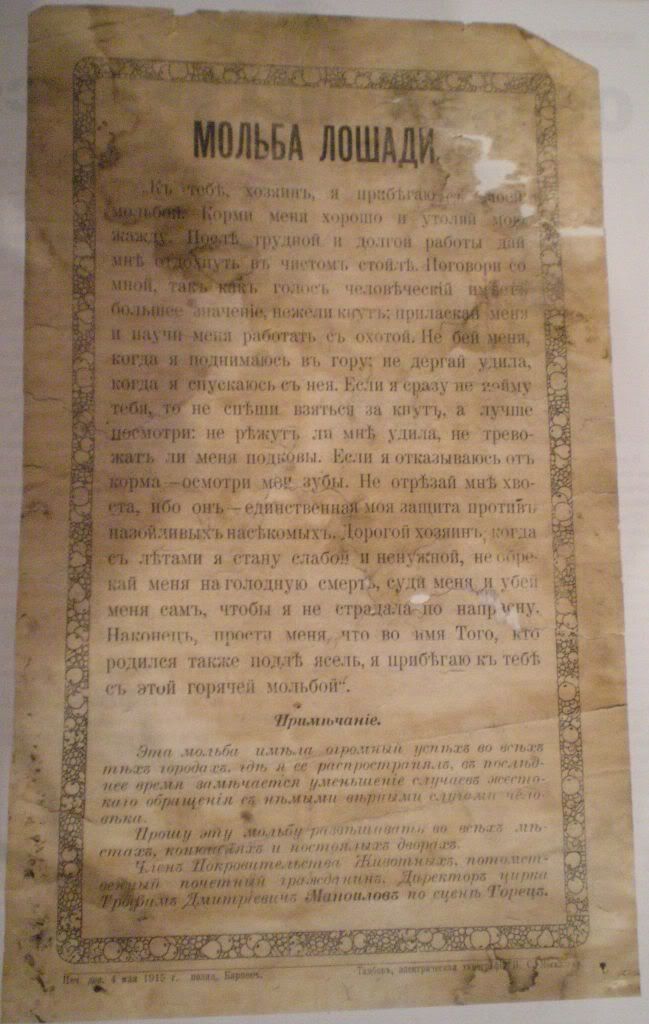 МОЛЬБА ЛОШАДИ.
„Къ тебѣ, хозяинъ, я прибѣгаю съ моей
мольбой. Корми меня хорошо и утоляй мою
жажду. Послѣ трудной и долгой работы дай
мнѣ отдохнуть въ чистомъ стойлѣ. Поговори со
мной, такъ какъ голосъ человѣческій имѣетъ
большее значеніе, нежели кнутъ; приласкай меня
и научи меня работать съ охотой. Не бей меня,
когда я поднимаюсь въ гору; не дергай удила,
когда я спускаюсь съ нея. Если я сразу не пойму
тебя, то не спѣши взяться за кнутъ, а лучше
посмотри: не рѣжутъ ли мнѣ удила, не трево-
жатъ ли меня подковы. Если я отказываюсь отъ
корма—осмотри мои зубы. Не отрѣзай мнѣ хво-
ста, ибо онъ—единственная моя защита противъ
назойливыхъ насѣкомыхъ. Дорогой хозяинъ, когда
съ лѣтами я стану слабой и ненужной, не обре-
кай меня на голодную смерть, суди меня и убей
меня самъ, чтобы я не страдала по напрасну.
Наконецъ, прости меня, что во имя Того, кто
родился также подлѣ ясель, я прибѣгаю къ тебѣ
съ этой горячей мольбой“.
Примѣчаніе.
Эта мольба имѣла огромный успѣхъ во всѣхъ
тѣхъ городахъ, гдѣ я ее распространялъ, въ послѣд-
нее время замѣчается уменьшеніе случаевъ жесто-
каго обращенія съ нѣмыми вѣрными слугами чело-
вѣка.
Прошу эту мольбу развѣшивать во всѣхъ мѣ-
стахъ, конюшняхъ и постоялыхъ дворахъ.
Членъ Покровительства Животныхъ, потомст-
венный почетный гражданинъ, Директоръ цирка
Трофимъ Дмитріевичъ Маноиловъ по сценѣ Горецъ.
Печ. дозв. 4 мая 1915 г. полиц.
Тамбовъ, электрическая